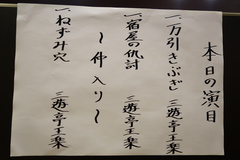 本日の演目
一、万引きぶぎ 三遊亭王楽
一、宿屋の仇討 三遊亭王楽
〜仲入り〜
一、ねずみ穴 三遊亭王楽